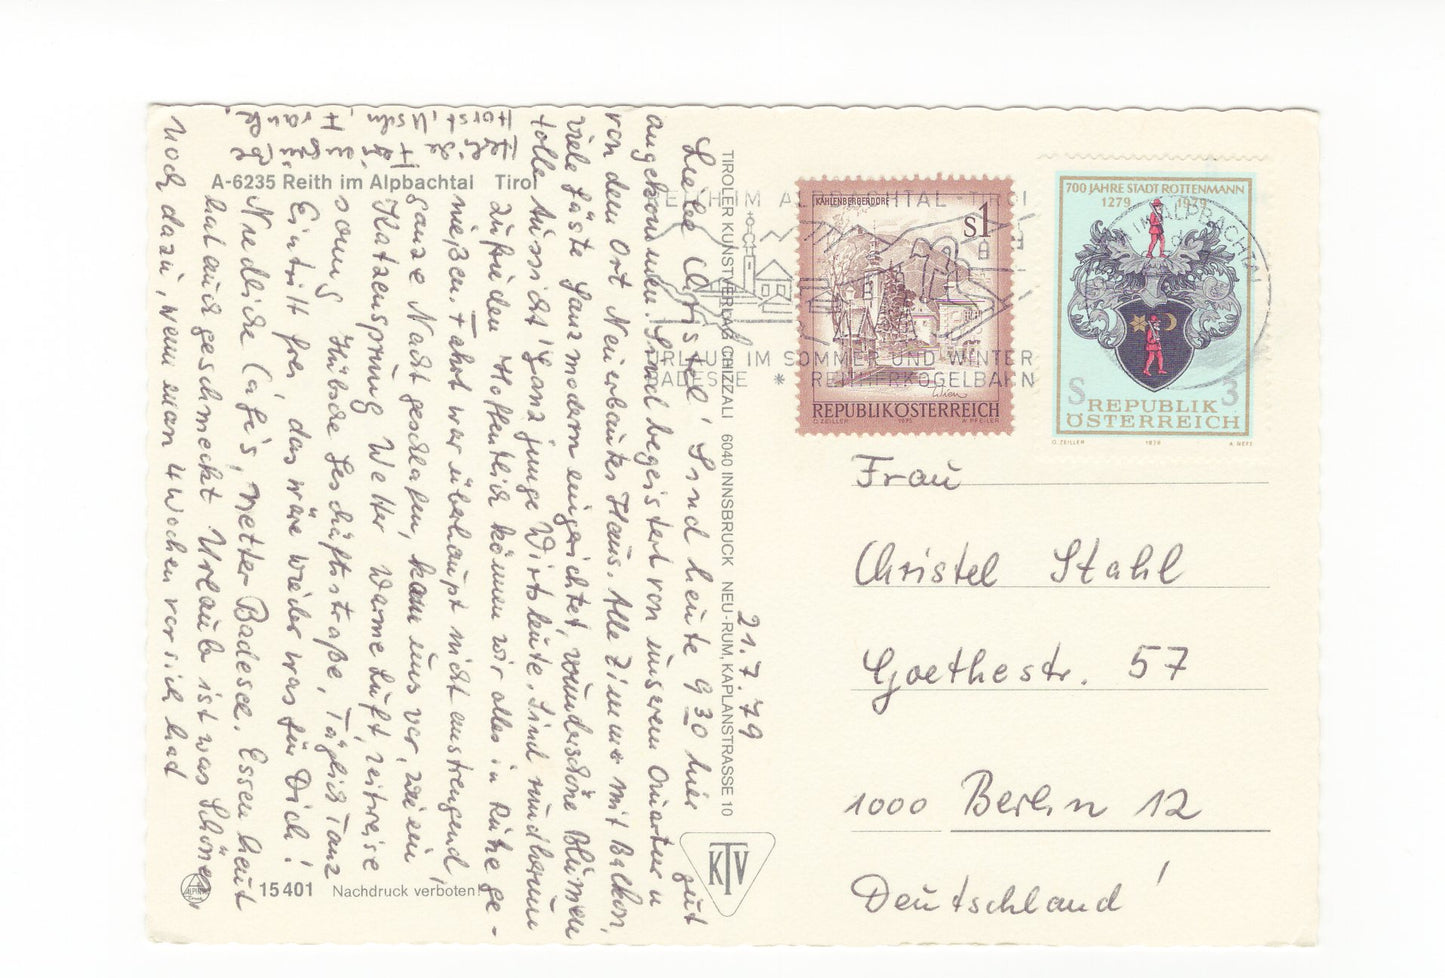 A-6235 Reith im Alpbachtal Tirol
21.7.79
Liebe Christel! Sind heute 9 30 hier gut
angekommen. Sind begeistert von unserem Quartier u
von dem Ort. Neuerbautes Haus. Alle Zimmer mit Balkon,
viele Gäste. Ganz modern eingerichtet, wunderschöne Blumen
tolle Aussicht! Ganz junge Wirtsleute. Sind rundherum
zufrieden. Hoffentlich können wir alles in Ruhe ge-
nießen. Fahrt war überhaupt nicht anstrengend,
ganze Nacht geschlafen, kam uns vor, wie ein
Katzensprung. Wetter warme Luft, zeitweise
sonnig. Hübsche Geschäftsstraße, Täglich Tanz
Eintritt frei, das wäre wieder was für Dich!
Niedliche Cafe's, netter Badesee. Essen heut
hat auch geschmeckt. Urlaub ist was Schönes
noch dazu, wenn man 4 Wochen vor sich hat
Herzliche
Grüße
Horst, Frank
TIROLER KUNSTVERLAG CHIZZALI 6040 INNSBRUCK NEU-RUM, KAPLANSTRASSE 10
KTV
15401 Nachdruck verboten!
REITH IM ALPBACHTAL TIROL
URLAUB IM SOMMER UND WINTER
BADESEE * REITHERKOGELBAHN
KAHLENBERGERDORF
S1
REPUBLIK ÖSTERREICH
O. ZEILLER 1975 A. PFEILER
700 JAHRE STADT ROTTENMANN
1279 1979
IM ALPBACHTAL
S 3
REPUBLIK
ÖSTERREICH
O. ZEILLER 1979 A. NEFE
Frau
Christel Stahl
Goethestr. 57
1000 Berlin 12
Deutschland!